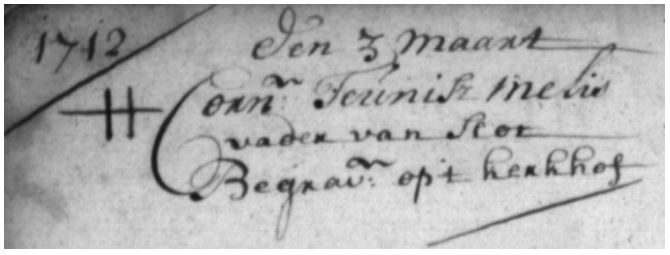 1712 den 3 maart
Corn:ⁿ Teunisz melis
vader van Slot
Begrav:ⁿ op't kerkhof